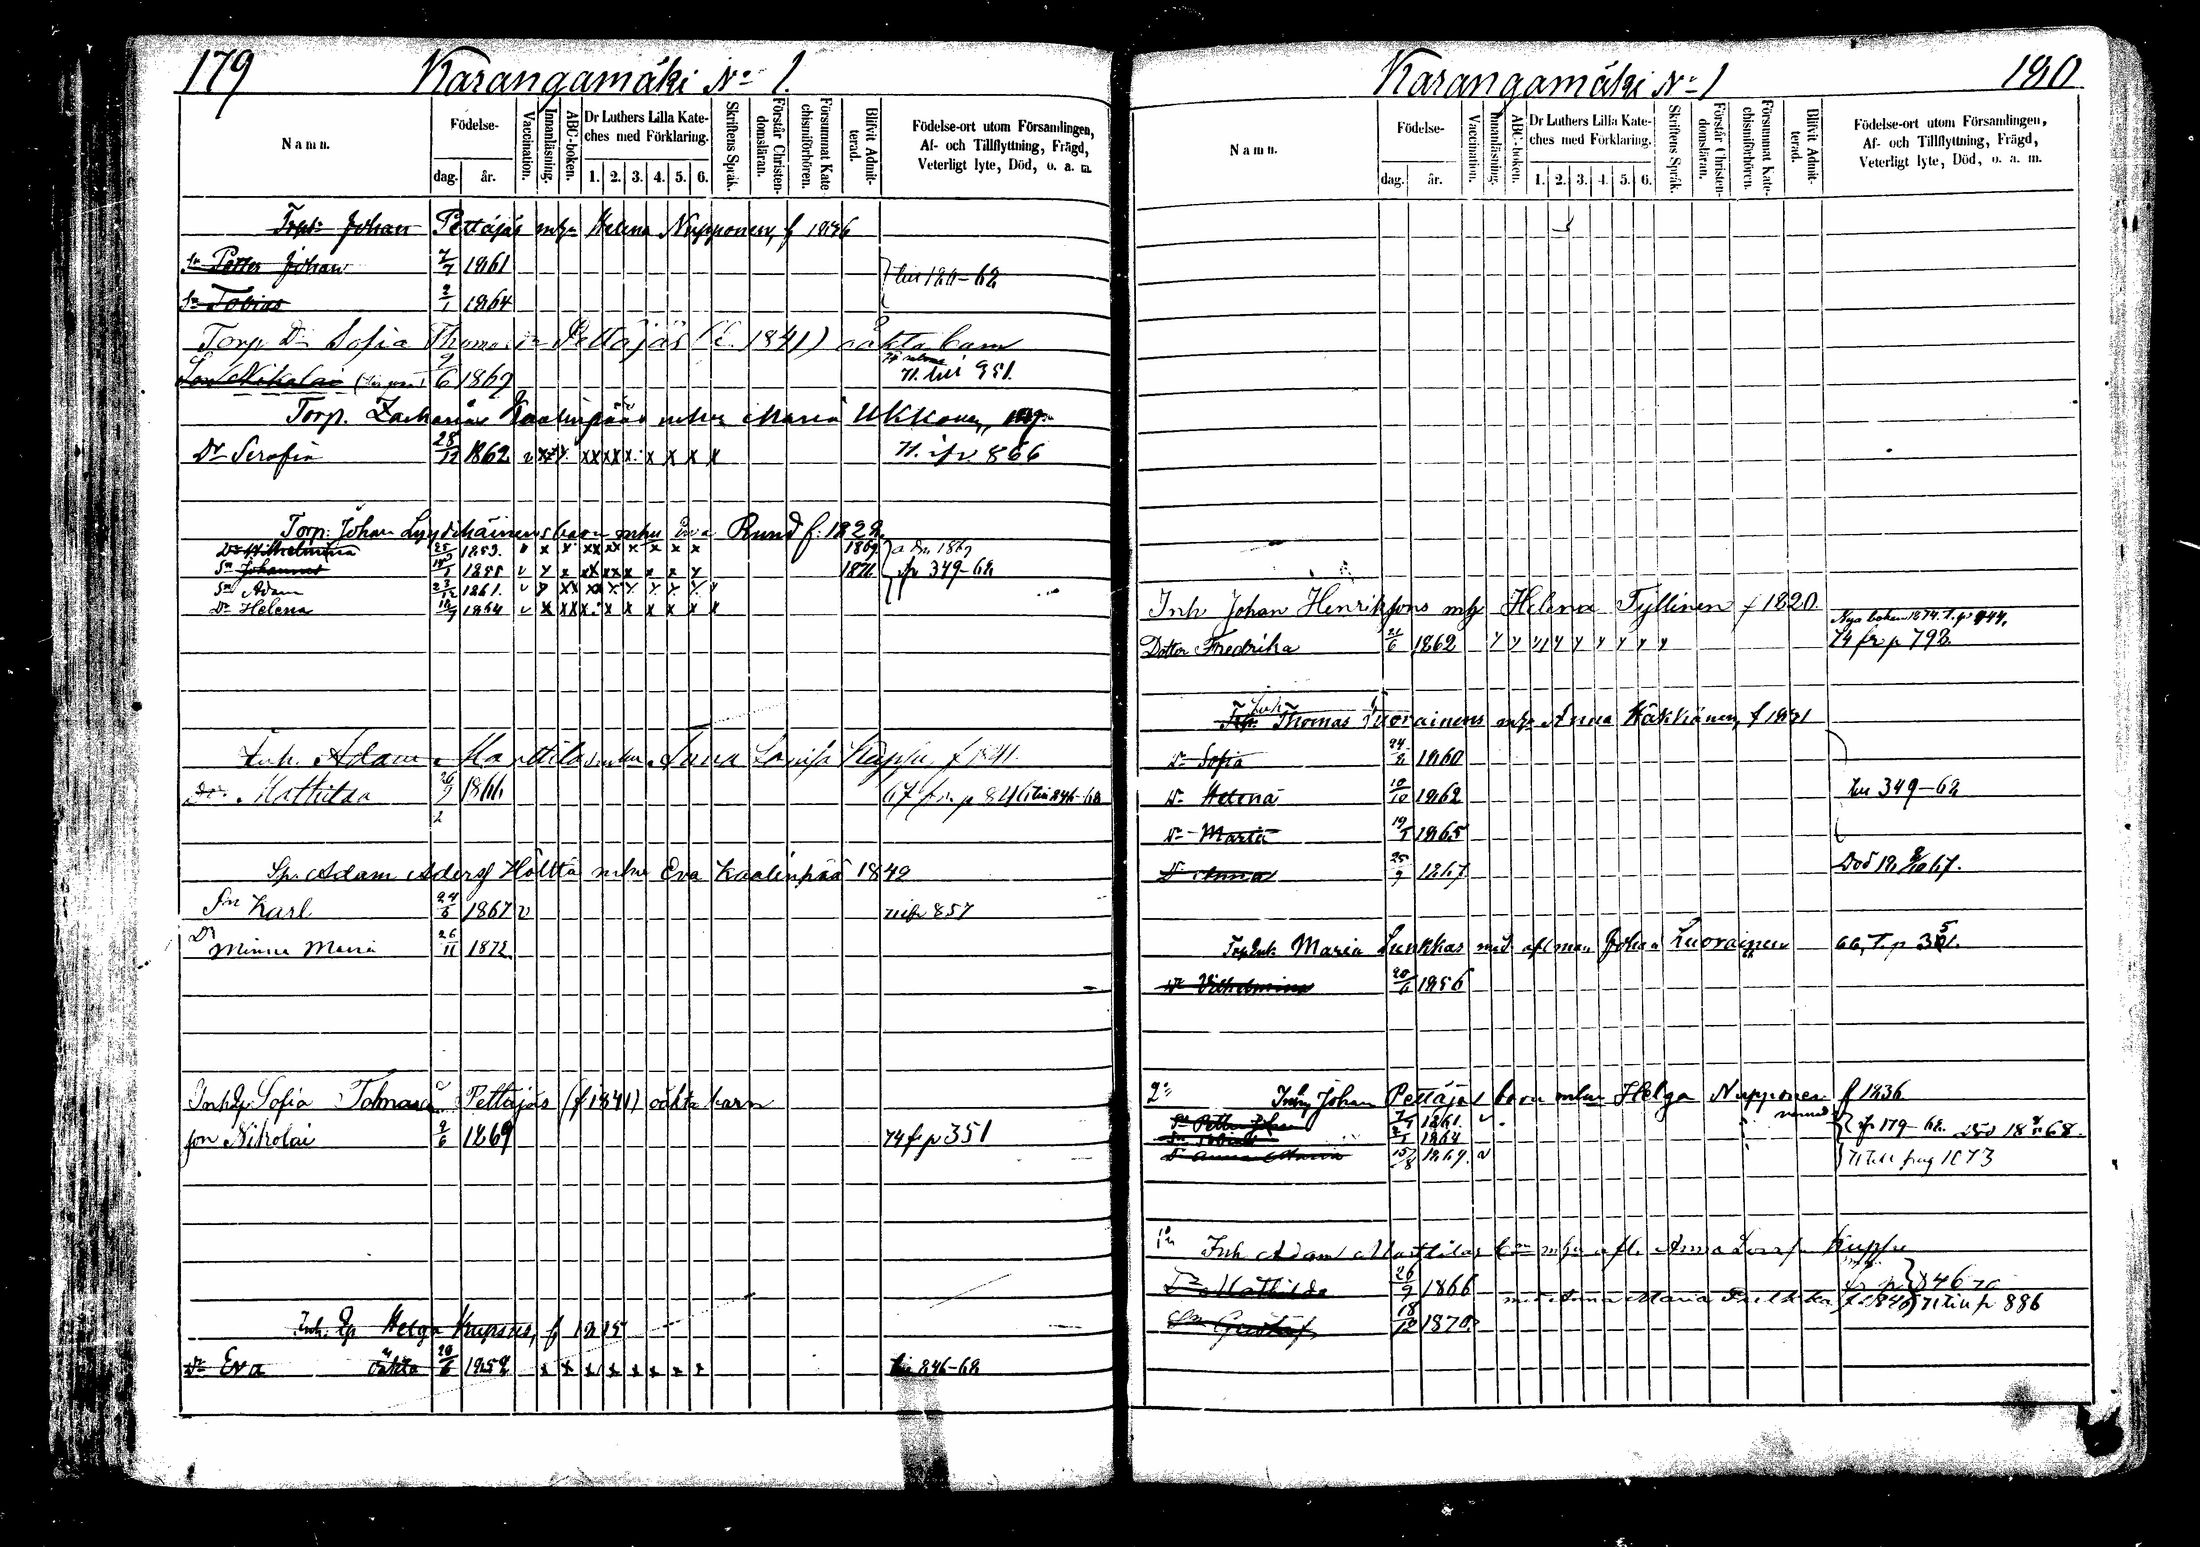 179 Karangamäki No 1.
Namn. Födelse- dag. år. Vaccination. Innanläsning. ABC-boken. Dr Luthers Lilla Kateches med Förklaring. 1. 2. 3. 4. 5. 6. Skriftens Språk. Förstår Christendomsläran. Försummat Katechismiförhören. Blifvit Admitterad. Födelse-ort utom Församlingen, Af- och Tillflyttning, Frägd, Veterligt lyte, Död, o. a. m.
Torp. Johan Pettäjäs mhu Helena Nupponen, f 1836
Sn Petter Johan 7/7 1861
till 180-68
Sn Tobias 2/1 1864
Torp. Dr Sofia Pettäjäs (f. 1841) oäkta barn
Son Nikolai 9/6 1869 71. till 951.
Torp. Zacharias Kaalinpää mhu Maria Ukkonen
Dr Serofia 28/12 1862 v x x x x x x x x x 71. ifr. 866
Torp. Johan barn mhu Eva Rund f. 1822.
Dr Wilhelmina 1853. v x x x x x x x x x 1869
Sn Johannes 1855 v x x x x x x x x 1871 ifr 349-68
Sn Adam 1861. v x x x x x x x x
Dr Helena 1864 v x x x x x x x x
Inh. Adam Marttilas mhu Anna Lovisa Kuppu
Dr Mathilda 26/9 1866 67 fr. p 846 till 846-68
Sp. Adam Adersf Hölttä mhu Eva Kaalinpää 1842
Sn Karl 24/6 1867 v 71 ifr 857
Dr Minna Maria 26/11 1872.
Inh Dr Sofia Pettäjäs (f 1841) oäkta barn
son Nikolai 9/6 1869 74 fr p 351
Inh. Helga Kupsus, f 1815
Dr Eva oäkta 20/6 1852 x x x x x x x x till 846-68
Karangamäki No 1 180
Namn. Födelse- dag. år. Vaccination. Innanläsning. ABC-boken. Dr Luthers Lilla Kateches med Förklaring. 1. 2. 3. 4. 5. 6. Skriftens Språk. Förstår Christendomsläran. Försummat Katechismiförhören. Blifvit Admitterad. Födelse-ort utom Församlingen, Af- och Tillflyttning, Frägd, Veterligt lyte, Död, o. a. m.
Inh Johan Henriksons mh Helena Tyllinen f 1820.
Nya boken 1874. T. p 944.
Dotter Fredrika 21/6 1862 74 fr p 798.
Inh Thomas Luorainens mhu Anna Häkkänen, f 1831
Dr Sofia 24/2 1860
Dr Helena 10/10 1862 till 349-68
Dr Maria 19/1 1865
Dr Anna 25/9 1867. Död
Inh. Maria Lunkkas med afl man Johan Luorainen 66, T. p 351.
Dr Vilhelmina 20/6 1856
2: Inh. Johan Pettäjäs barn mhu Helga Nupponen f 1836
Sn Petter Johan 7/7 1861. v
Sn Tobias 2/1 1864 ifr 179-68. död
Dr Anna Maria 15/8 1869. v 71 till pag 1073
1: Inh Adam Marttilas mhu afl. Anna Lovisa Kuppu
Dr Mathilda 26/9 1866 fr p 846
med Anna Maria 71 till p 886
Sn Gustaf 18/12 1870.